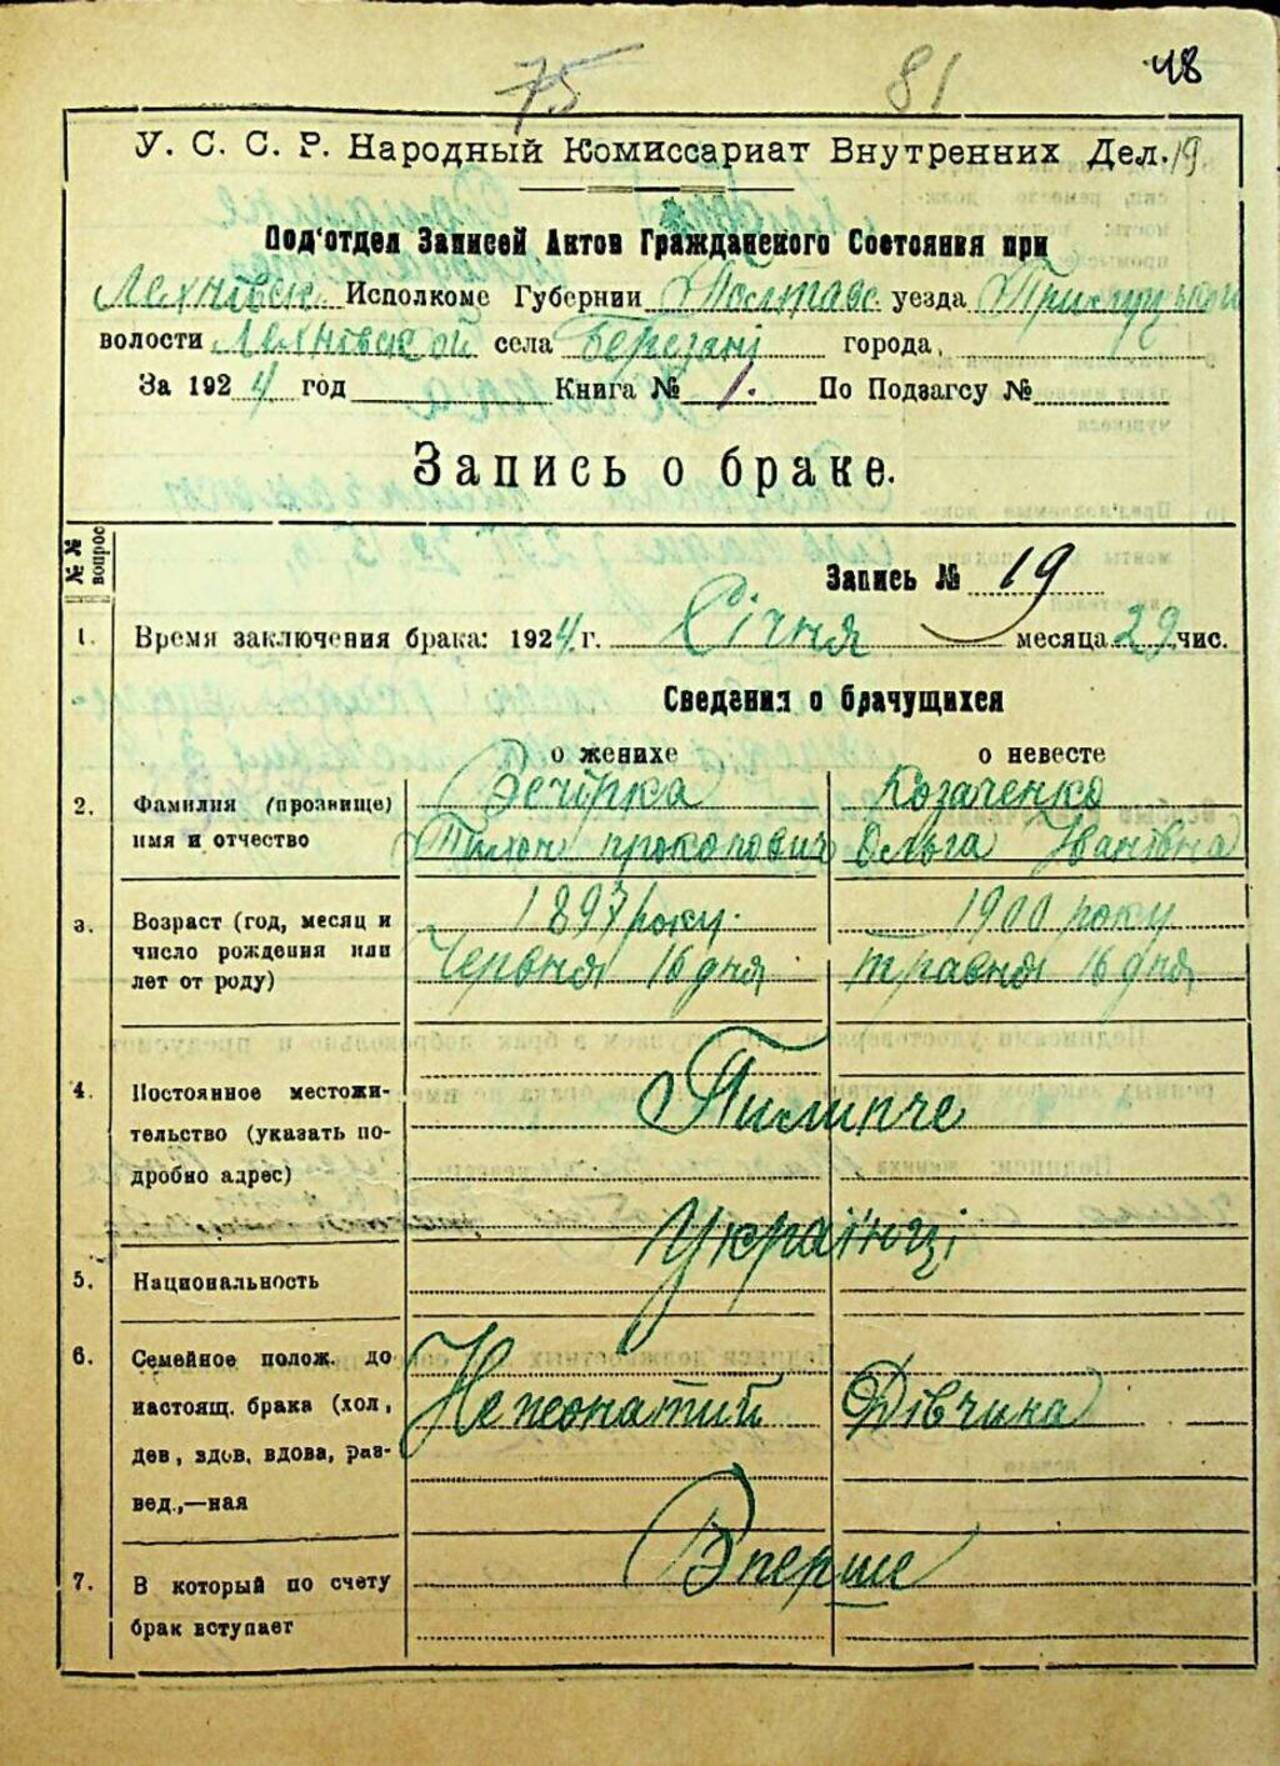 75 81 48
У. С. С. Р. Народный Комиссариат Внутренних Дел. 19
Под'отдел Записей Актов Гражданского Состояния при
Лехнівск. Исполкоме Губернии Полтавс. уезда Прилуцького
волости Лехнівской села Березані города,
За 1924 год Книга № 1. По Подзагсу №
Запись о браке.
№№ вопрос
Запись № 19
1. Время заключения брака: 1924 г. Січня месяца 29 чис.
Сведения о брачущихся
о женихе о невесте
2. Фамилия (прозвище) Вечірка Козаченко
имя и отчество Тихон прокопович Ольга Іванівна
3. Возраст (год, месяц и 1897 року. 1900 року
число рождения или Червня 16 дня травня 16 дня
лет от роду)
4. Постоянное местожи- Пилипче
тельство (указать по-
дробно адрес)
Українці
5. Национальность
6. Семейное полож. до
настоящ. брака (хол, Нежонатий Дівчина
дев, вдов, вдова, раз-
вед.,—ная
Вперше
7. В который по счету
брак вступает